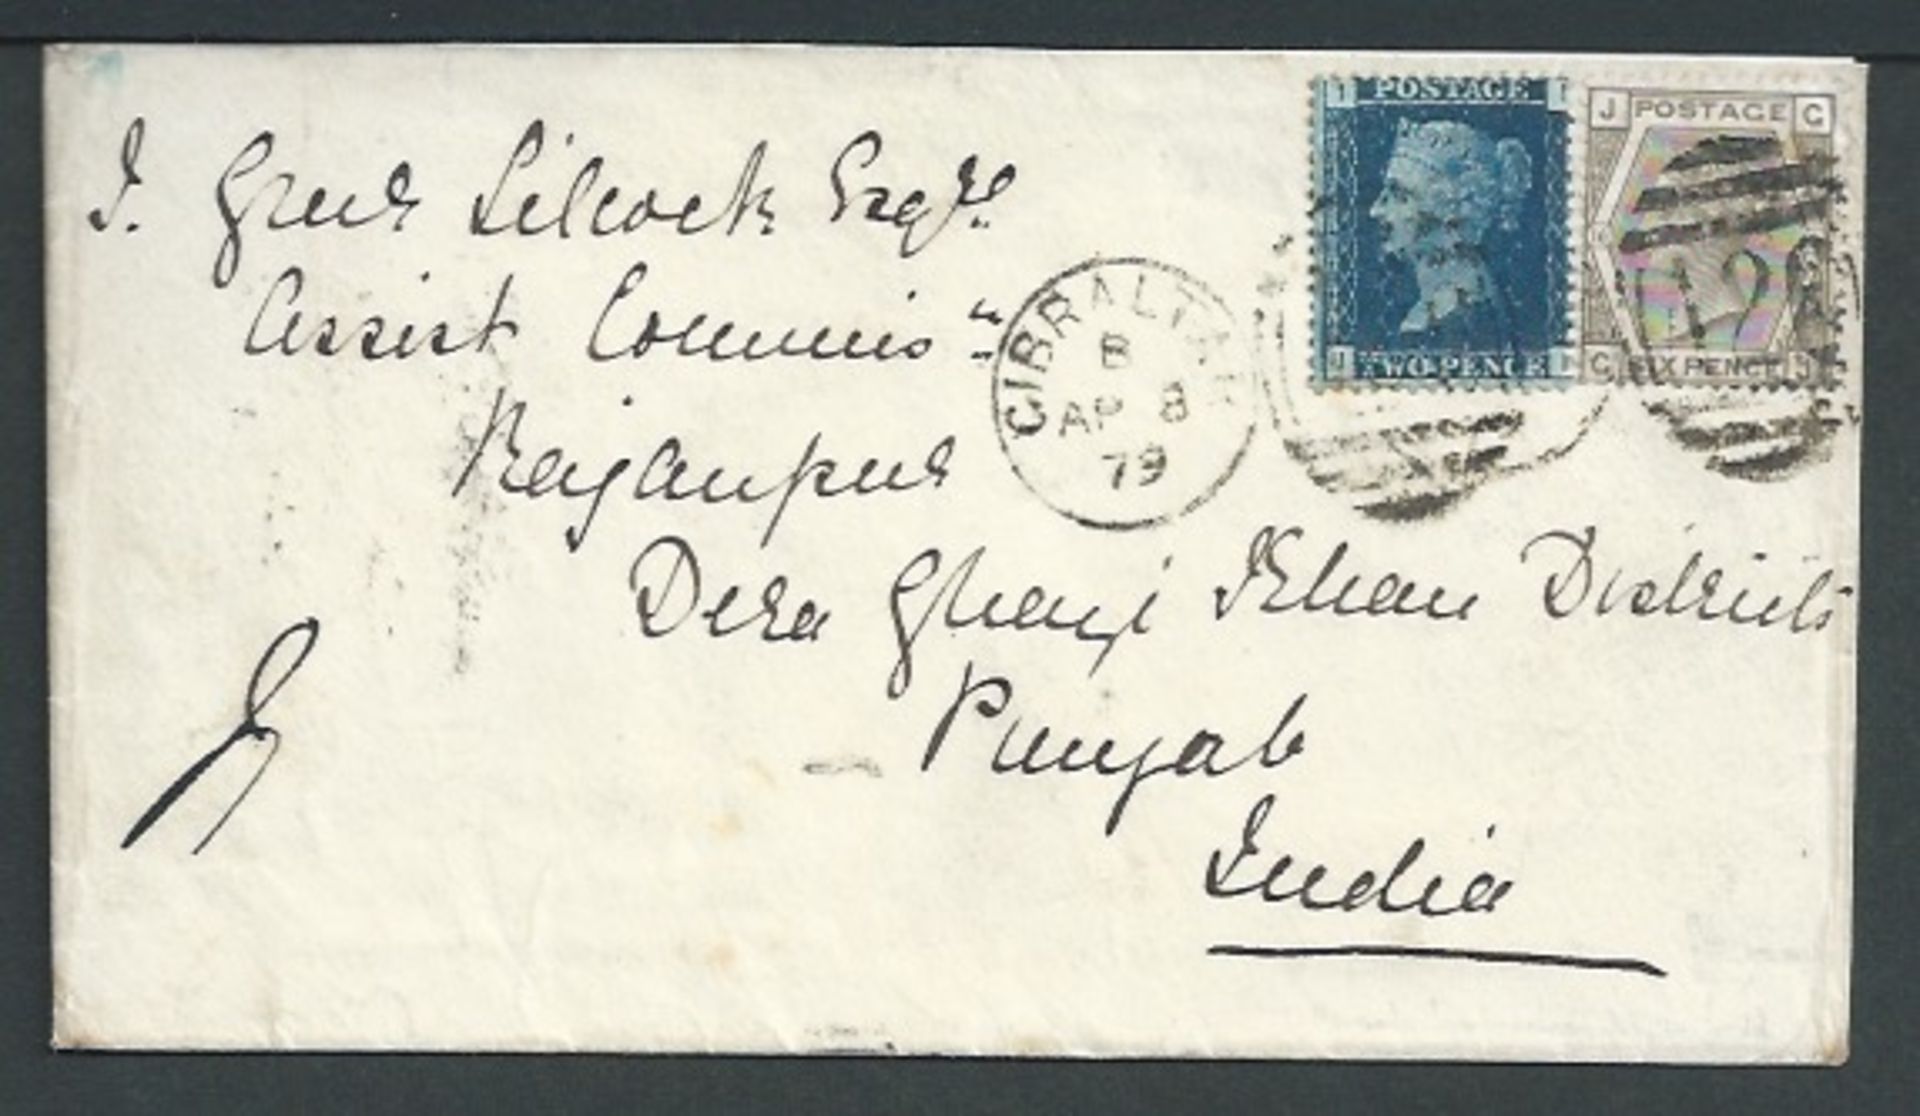 POSTAGE
TWO PENCE
J POSTAGE G
G SIX PENCE J
GIBRALTAR
B
AP 8
79
J. Silcock Esqre
Assist Commisr
Rajanpur
Dera Ghazi Khan District
Punjab
India